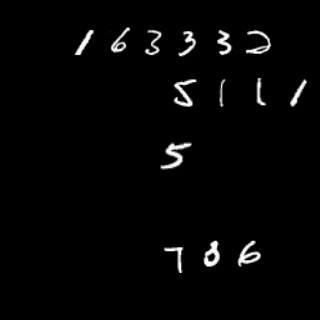 163332
5111
5
786